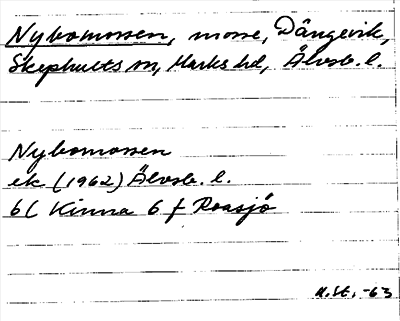 Nybomossen, mosse, Dångevik,
Skephults sn, Marks hd, Älvsb. l.
Nybomossen
ek (1962) Älvsb. l.
6C Kinna 6 f Roasjö
M.St. -63